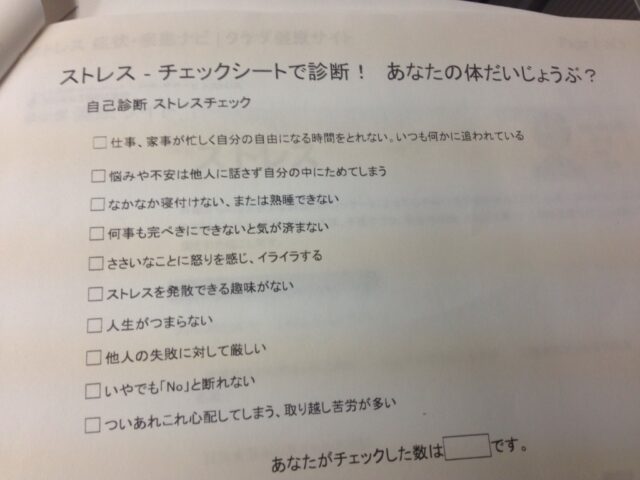 ストレス - チェックシートで診断！ あなたの体だいじょうぶ？
自己診断 ストレスチェック
□仕事、家事が忙しく自分の自由になる時間をとれない。いつも何かに追われている
□悩みや不安は他人に話さず自分の中にためてしまう
□なかなか寝付けない、または熟睡できない
□何事も完ぺきにできないと気が済まない
□ささいなことに怒りを感じ、イライラする
□ストレスを発散できる趣味がない
□人生がつまらない
□他人の失敗に対して厳しい
□いやでも「No」と断れない
□ついあれこれ心配してしまう、取り越し苦労が多い
あなたがチェックした数は□です。